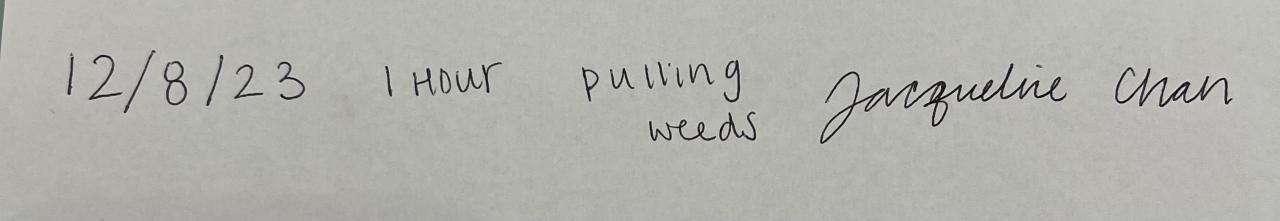 12/8/23 1 Hour pulling weeds Jacqueline Chan